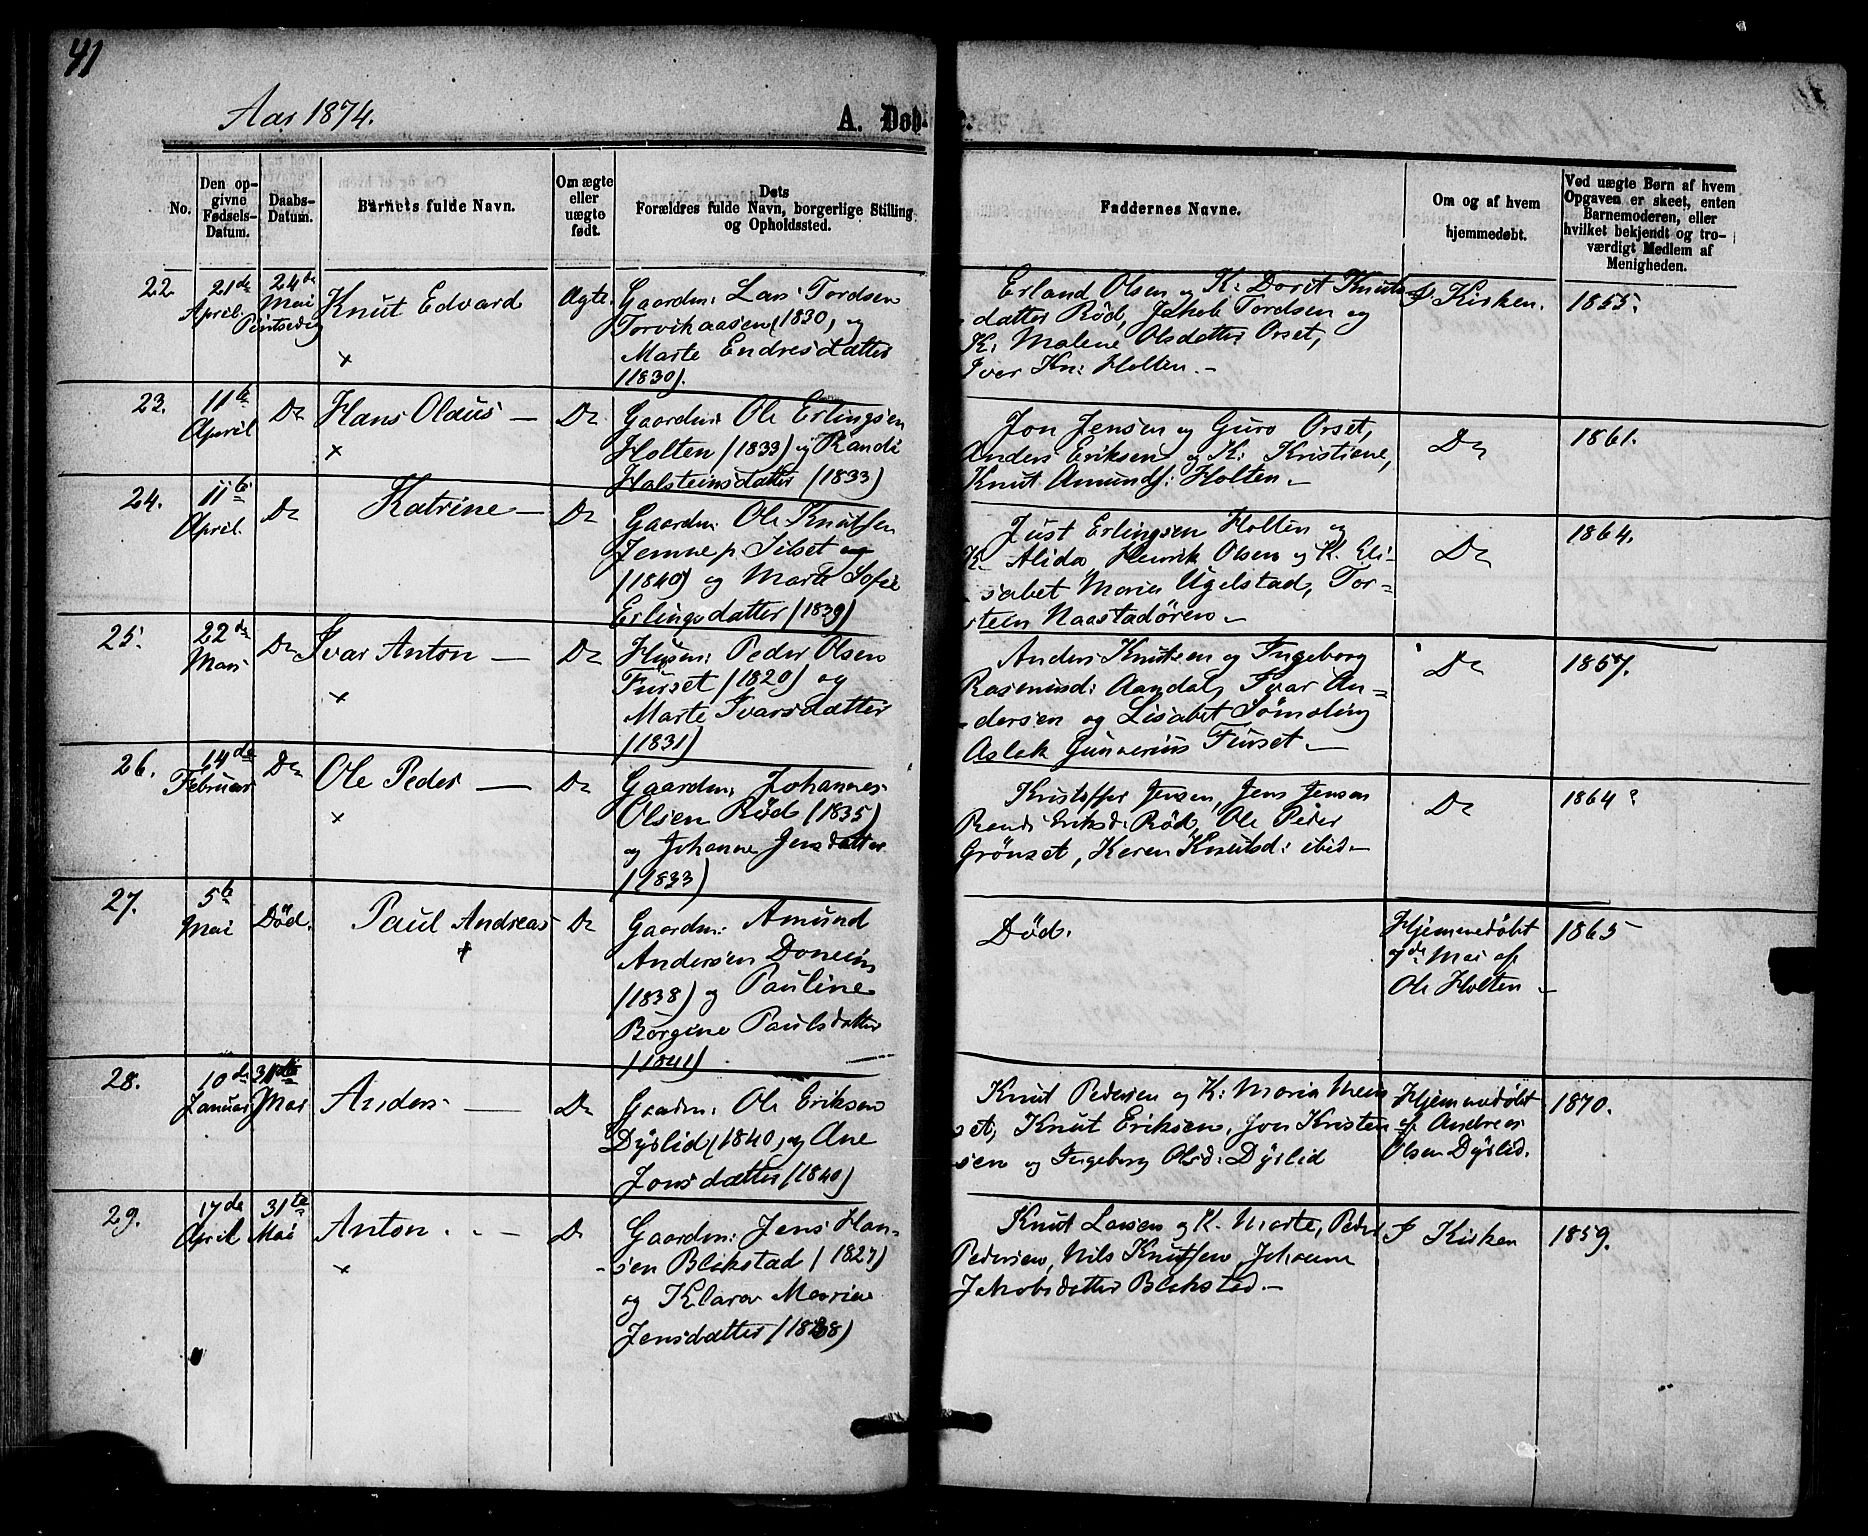 41
Aar 1874.
A. Døbte.
No.
Den op-
givne
Fødsels-
Datum.
Daabs-
Datum.
Barnets fulde Navn.
Om ægte
eller
uægte
født.
Dets
Forældres fulde Navn, borgerlige Stilling
og Opholdssted.
Faddernes Navne.
Om og af hvem
hjemmedøbt.
Ved uægte Børn af hvem
Opgaven er skeet, enten
Barnemoderen, eller
hvilket bekjendt og tro-
værdigt Medlem af
Menigheden.
22
21de
April.
24de
Mai
Pintsedag
Knut Edvard
+
Ægte.
Gaardm: Lars Tordsen
Torvikaasen (1830, og
Marte Endresdatter
(1830).
Erland Olsen og K: Dorit Knuts
datter Rød, Jakob Tordsen og
K: Malene Olsdatter Orset,
Iver Kn: Holten. -
I Kirken.
1855.
23.
11te
April
Do
Hans Olaus —
+
Do
Gaardm: Ole Erlingsen
Holten (1833) og Randi
Halsteinsdatter (1833)
Jon Jensen og Guro Orset,
Anders Eriksen og K: Kristiane,
Knut Amunds: Holten. -
Do
1861.
24.
11te
April.
Do
Katrine —
Do
Gaardm: Ole Knutsen
Jemne p. Silset og
(1840) og Marte Sofie
Erlingsdatter (1839)
Just Erlingsen Holten og
K. Alida, Henrik Olsen og K. Eli-
sabet Maria Ugelstad, Tor-
stein Naastadøren. -
Do
1864.
25.
22de
Mars
Do
Ivar Anton —
+
Do
Husm: Peder Olsen
Furset (1820) og
Marte Ivarsdatter
(1831)
Anders Knutsen og Ingeborg
Rasmusd: Aandal, Ivar An-
dersen og Lisabet Sømoling
Aslak Gunnerius Furset. -
Do
1857.
26.
14de
Februar
Do
Ole Peder —
+
Do
Gaardm: Johannes
Olsen Rød (1835)
og Johanne Jensdatter
(1833)
Kristoffer Jensen, Jens Jensen
Randi Eriksd: Rød, Ole Peder
Grønset, Karen Knutsd: ibid -
Do
1864?
27.
5te
Mai
Død.
Paul Andreas
+
Do
Gaardm: Amund
Andersen Donem
(1838) og Pauline
Borgine Paulsdatter
(1841)
Død.
Hjemmedøbt
7de Mai af
Ole Holten -
1865
28.
10de
Januar
31te
Mai
Anders —
Do
Gaardm: Ole Eriksen
Dyslid (1840, og Ane
Jonsdatter (1840)
Knut Pedersen og K: Maria Meis
set, Knut Eriksen, Jon Kristen
sen og Ingeborg Olsd: Dyslid
Hjemmedøbt
af Andreas
Olsen Dyslid.
1870.
29.
17de
April
31te
Mai
Anton. - -
+
Do
Gaardm: Jens Han-
sen Blikstad (1827)
og Klara Marie
Jensdatter (1838)
Knut Larsen og K. Marte, Peder
Pedersen, Nils Knutsen, Johanne
Jakobsdatter Blikstad. -
I Kirken
1859.